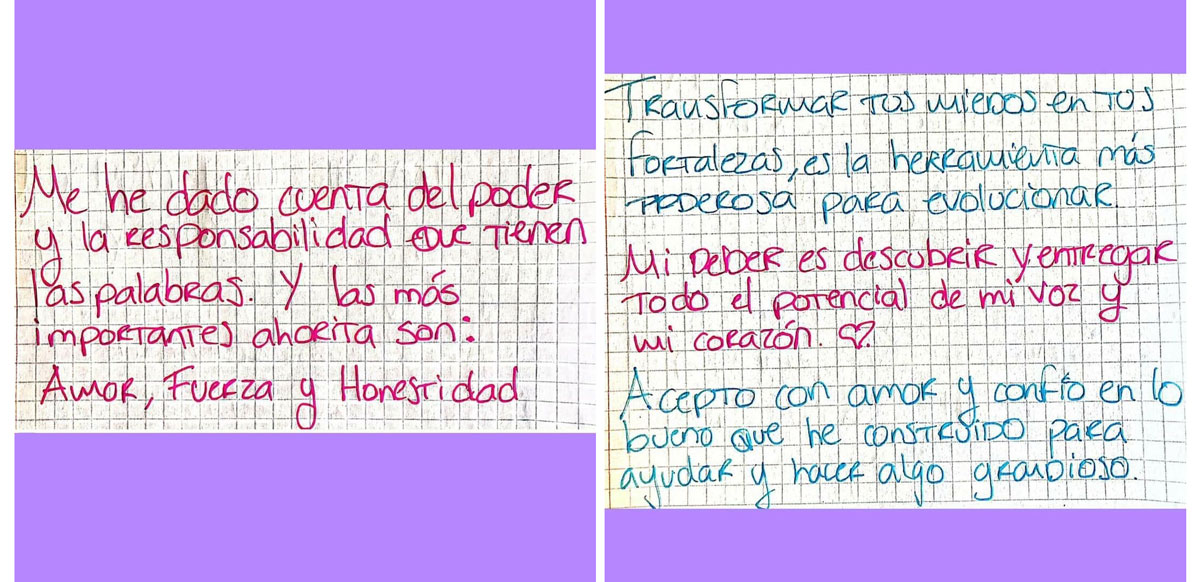 Me he dado cuenta del poder
y la responsabilidad que tienen
las palabras. Y las más
importantes ahorita son:
Amor, Fuerza y Honestidad
Transformar tus miedos en tus
fortalezas, es la herramienta más
poderosa para evolucionar.
Mi deber es descubrir y entregar
todo el potencial de mi voz y
mi corazón. ♡
Acepto con amor y confío en lo
bueno que he construido para
ayudar y hacer algo grandioso.